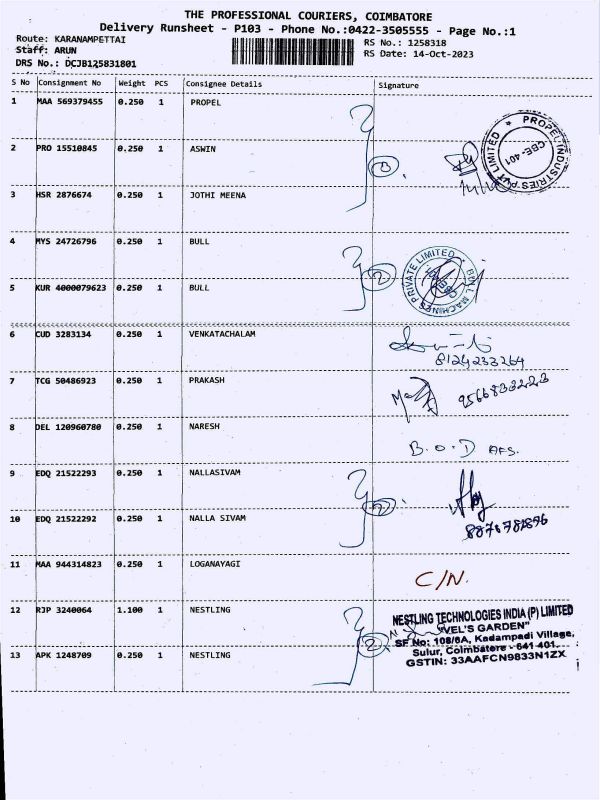 THE PROFESSIONAL COURIERS, COIMBATORE
Delivery Runsheet - P103 - Phone No.:0422-3505555 - Page No.:1
Route: KARANAMPETTAI
RS No.: 1258318
Staff: ARUN
RS Date: 14-Oct-2023
DRS No.: DCJB125831801
S No Consignment No Weight PCS Consignee Details Signature
1 MAA 569379455 0.250 1 PROPEL
PROPEL INDUSTRIES PVT LIMITED
CBE-401
2 PRO 15510845 0.250 1 ASWIN
3
3 HSR 2876674 0.250 1 JOTHI MEENA
4 MYS 24726796 0.250 1 BULL
2
BULL MACHINES PRIVATE LIMITED
5 KUR 4000079623 0.250 1 BULL
6 CUD 3283134 0.250 1 VENKATACHALAM
8124233264
7 TCG 50486923 0.250 1 PRAKASH
9566833223
8 DEL 120960780 0.250 1 NARESH
B.O.D AFS.
9 EDQ 21522293 0.250 1 NALLASIVAM
2
10 EDQ 21522292 0.250 1 NALLA SIVAM
11 MAA 944314823 0.250 1 LOGANAYAGI
C/N.
12 RJP 3240064 1.100 1 NESTLING
2
NESTLING TECHNOLOGIES INDIA (P) LIMITED
"VEL'S GARDEN"
SF No: 108/6A, Kadampadi Village,
Sulur, Coimbatore - 641 401.
GSTIN: 33AAFCN9833N1ZX
13 APK 1248709 0.250 1 NESTLING